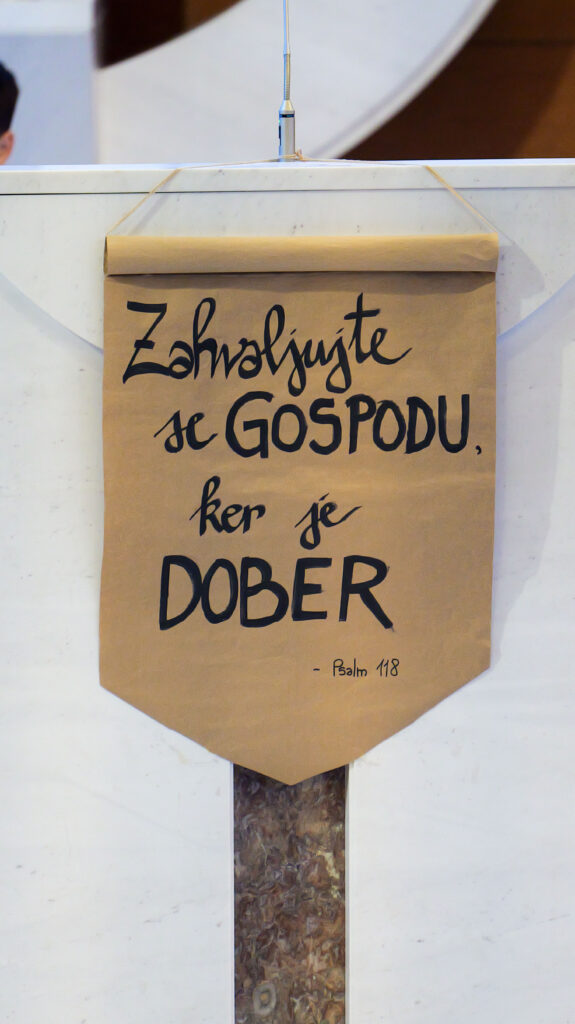 Zahvaljujte
se GOSPODU,
ker je
DOBER
- Psalm 118